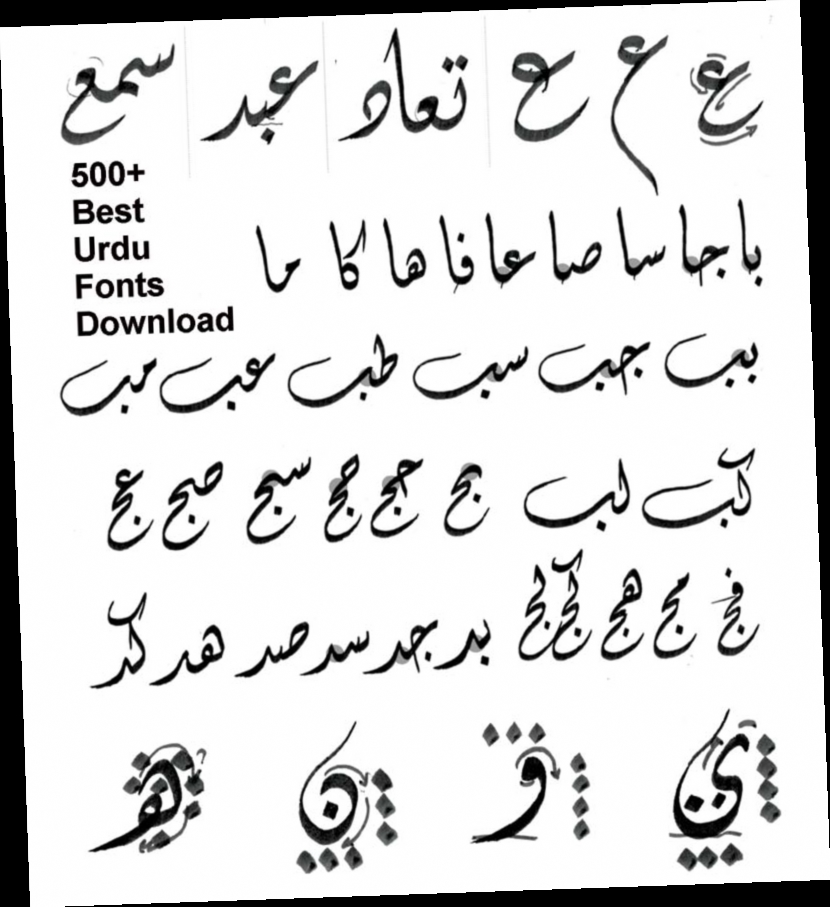 ع ع ع تعاد عبد سمع
500+
Best
Urdu
Fonts
Download
با جا سا صا عا فا ها كا ما
بب جب سب طب عب مب
كب لب بج حج سج صج عج
فج مج هج كج لج بد جد سد صد هد كد
ي و ن